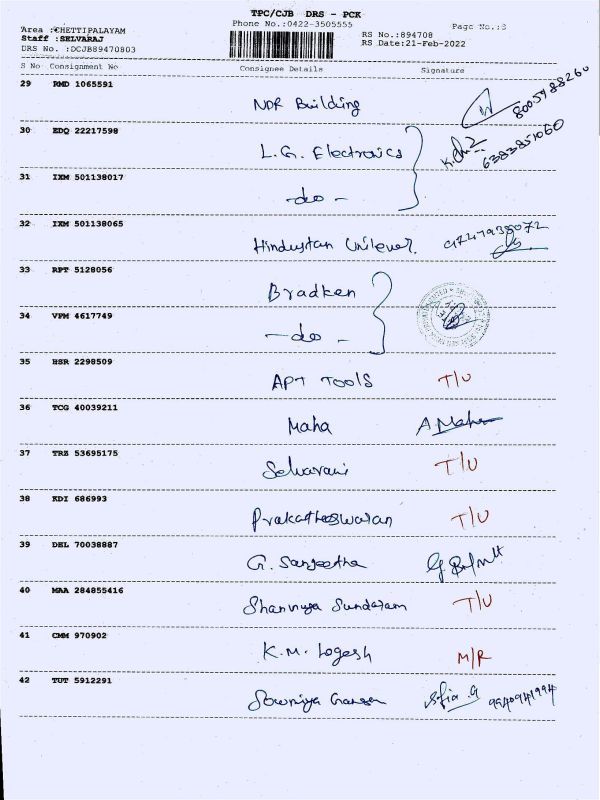 TPC/CJB DRS - PCK
Phone No.:0422-3505555
Page No.:3
Area :CHETTIPALAYAM
Staff :SELVARAJ
DRS No. :DCJB89470803
RS No.:894708
RS Date:21-Feb-2022
S No Consignment No Consignee Details Signature
29 RMD 1065591 NDR Building 8005988260
30 EDQ 22217598 L.G. Electronics 6383851060
31 IXM 501138017 -do-
32 IXM 501138065 Hindustan Unilever.
33 RPT 5128056 Bradken
34 VPM 4617749 -do-
35 BSR 2298509 APT TOOLS T/U
36 TCG 40039211 Maha A Maha
37 TRZ 53695175 Selvarani T/U
38 KDI 686993 Prakatheeswaran T/U
39 DEL 70038887 G. Sangeetha
40 MAA 284855416 Shannya Sundaram T/U
41 CMM 970902 K.M. Logesh M/R
42 TUT 5912291 Sowniya 9940941994